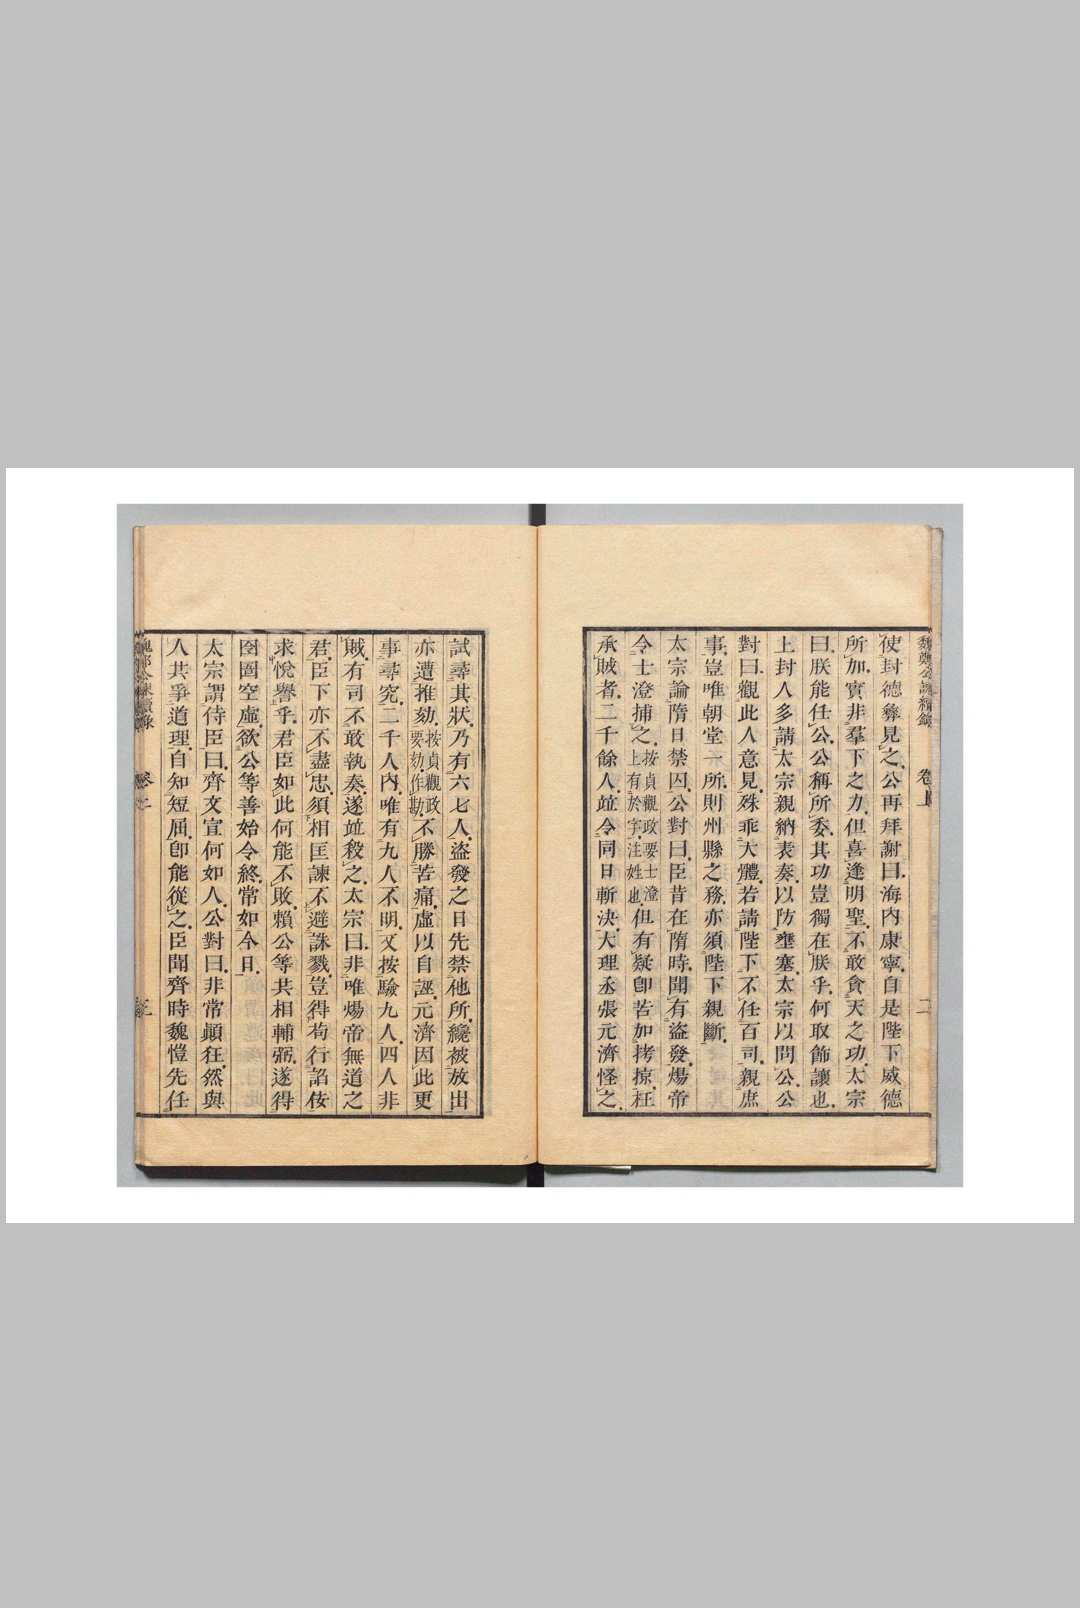 魏鄭公諫續錄 卷上 二
使封德彝見之公再拜謝曰海內康寧自是陛下威德
所加實非羣下之力但喜逢明聖不敢貪天之功太宗
曰朕能任公公稱所委其功豈獨在朕乎何取飾讓也
上封人多請太宗親納表奏以防壅塞太宗以問公公
對曰觀此人意見殊乖大體若請陛下不任百司親庶
事豈唯朝堂一所則州縣之務亦須陛下親斷
太宗論隋日禁囚公對曰臣昔在隋時聞有盜發煬帝
令士澄捕之按貞觀政要士澄上有於字注姓也但有疑卽苦加拷掠枉
承賊者二千餘人竝令同日斬決大理丞張元濟怪之
試尋其狀乃有六七人盜發之日先禁他所纔被放出
亦遭推劾按貞觀政要劾作勘不勝苦痛虛以自誣元濟因此更
事尋究二千人內唯有九人不明又按驗九人四人非
賊有司不敢執奏遂竝殺之太宗曰非唯煬帝無道之
君臣下亦不盡忠須相匡諫不避誅戮豈得苟行諂佞
求悅譽乎君臣如此何能不敗賴公等共相輔弼遂得
囹圄空虛欲公等善始令終常如今日
太宗謂侍臣曰齊文宣何如人公對曰非常顚狂然與
人共爭道理自知短屈卽能從之臣聞齊時魏愷先任